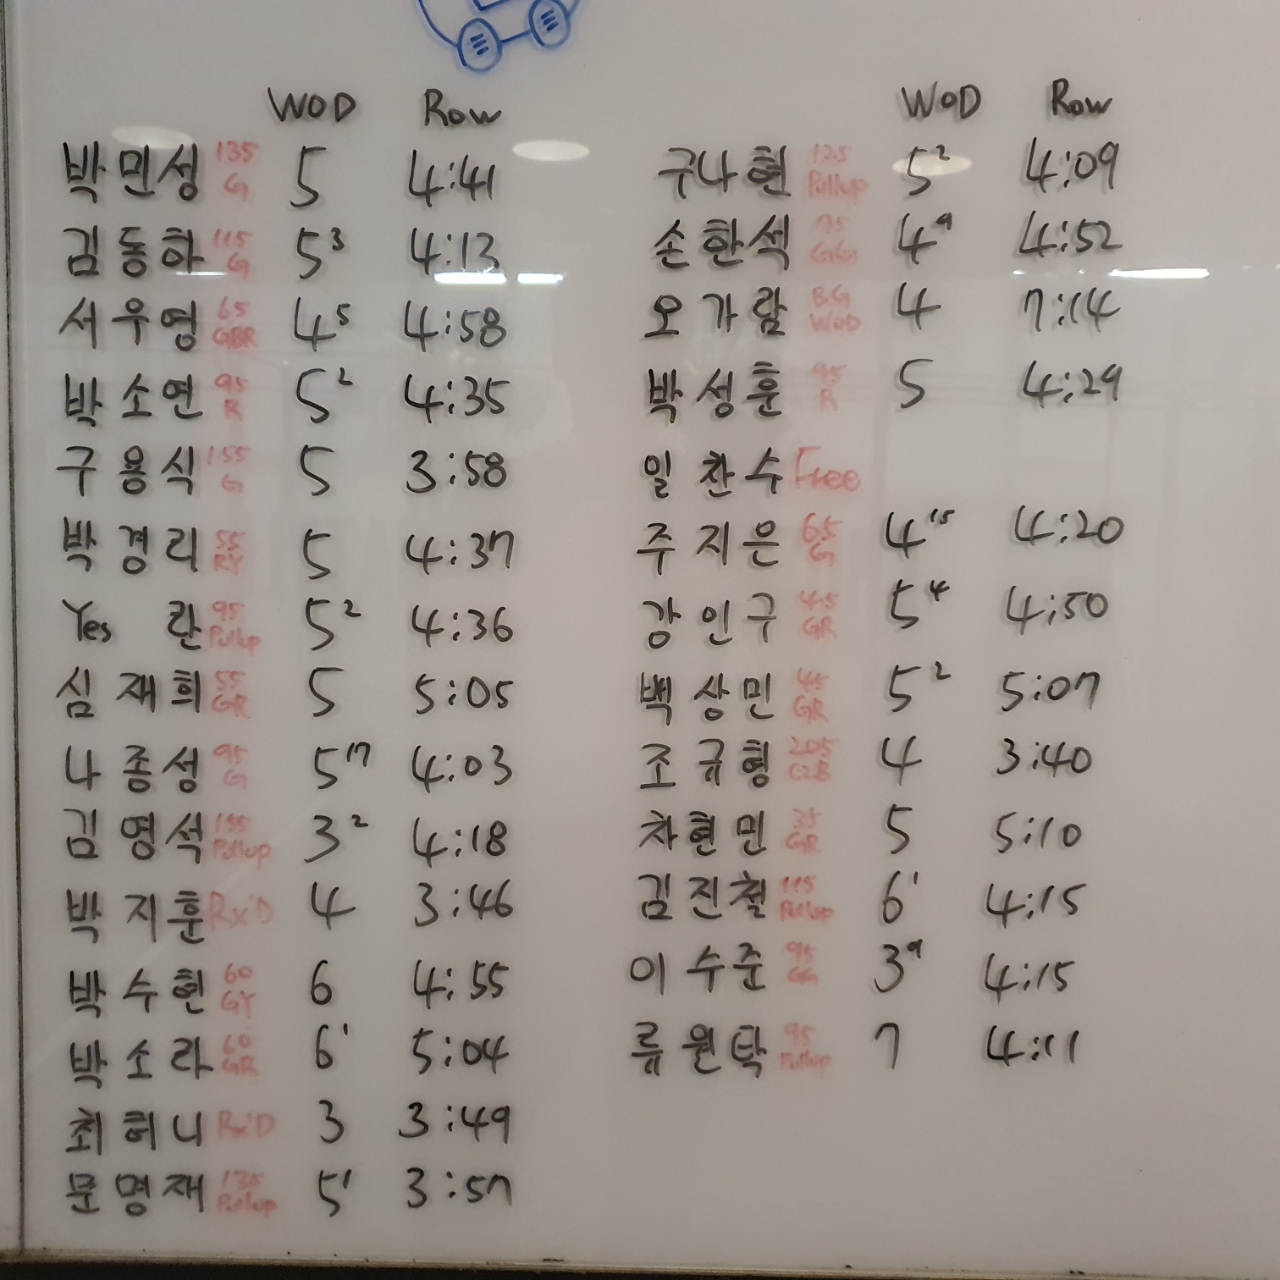 WOD Row
박민성 135 G 5 4:41
김동하 115 G 5³ 4:13
서우영 65 GBR 4⁵ 4:58
박소연 95 R 5² 4:35
구용식 155 G 5 3:58
박경리 55 RY 5 4:37
Yes 란 95 Pullup 5² 4:36
심재희 55 GR 5 5:05
나종성 95 G 5¹⁷ 4:03
김영석 155 Pullup 3² 4:18
박지훈 Rx'D 4 3:46
박수현 60 GY 6 4:55
박소라 60 GR 6¹ 5:04
최허니 Rx'D 3 3:49
문명재 135 Pullup 5¹ 3:57
WOD Row
구나현 125 Pullup 5² 4:09
손한석 75 GG 4⁹ 4:52
오가람 BG WOD 4 7:14
박성훈 95 R 5 4:29
일찬수 Free
주지은 65 G 4¹⁵ 4:20
강인구 45 GR 5⁴ 4:50
백상민 45 GR 5² 5:07
조규형 205 C2B 4 3:40
차현민 35 GR 5 5:10
김진철 115 Pullup 6¹ 4:15
이수준 95 GG 3⁹ 4:15
류원탁 95 Pullup 7 4:11